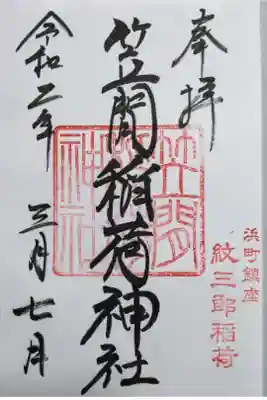 奉拝
浜町鎮座
紋三郎稲荷
笠間稲荷神社
笠間
稲荷
神社
令和二年
三月七日